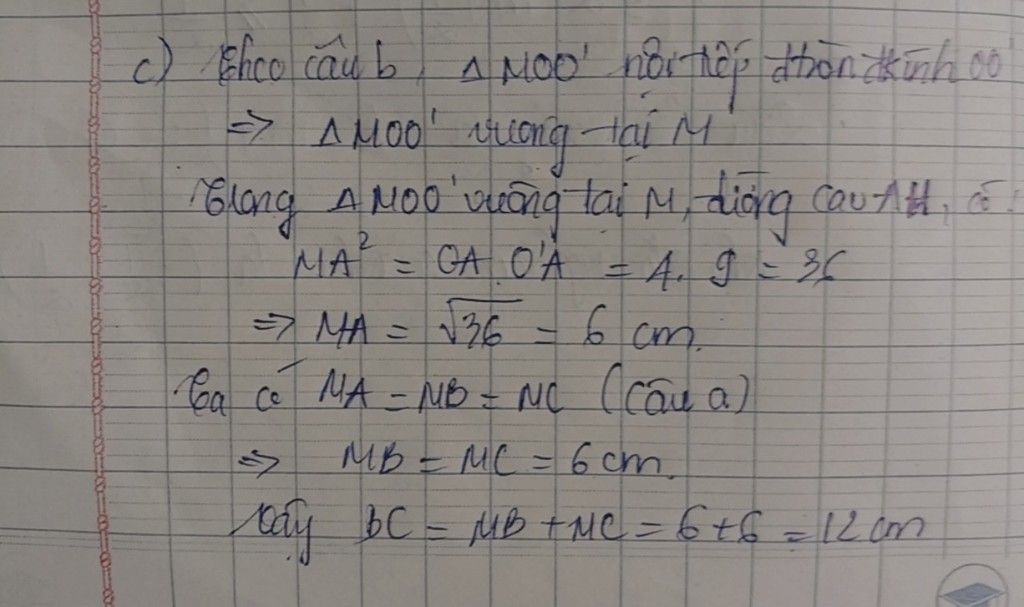 c) Theo câu b, Δ MOO' nội tiếp đường kính OO'
=> Δ MOO' vuông tại M
Trong Δ MOO' vuông tại M, đường cao AH, có:
MA² = OA. O'A = 4. 9 = 36
=> MA = √36 = 6 cm.
Ta có MA = MB = MC (Câu a)
=> MB = MC = 6 cm.
Vậy BC = MB + MC = 6 + 6 = 12 cm